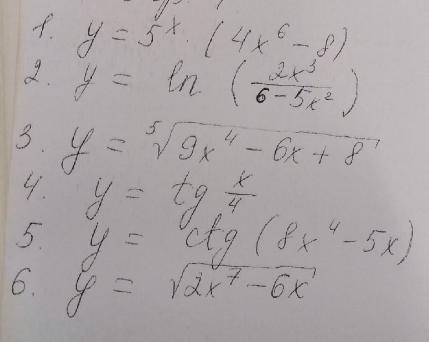 1. y = 5^x · (4x^6 - 8)
2. y = ln (2x^3 / (6 - 5x^2))
3. y = ⁵√(9x^4 - 6x + 8)
4. y = tg x/4
5. y = ctg (8x^4 - 5x)
6. y = √(2x^7 - 6x)